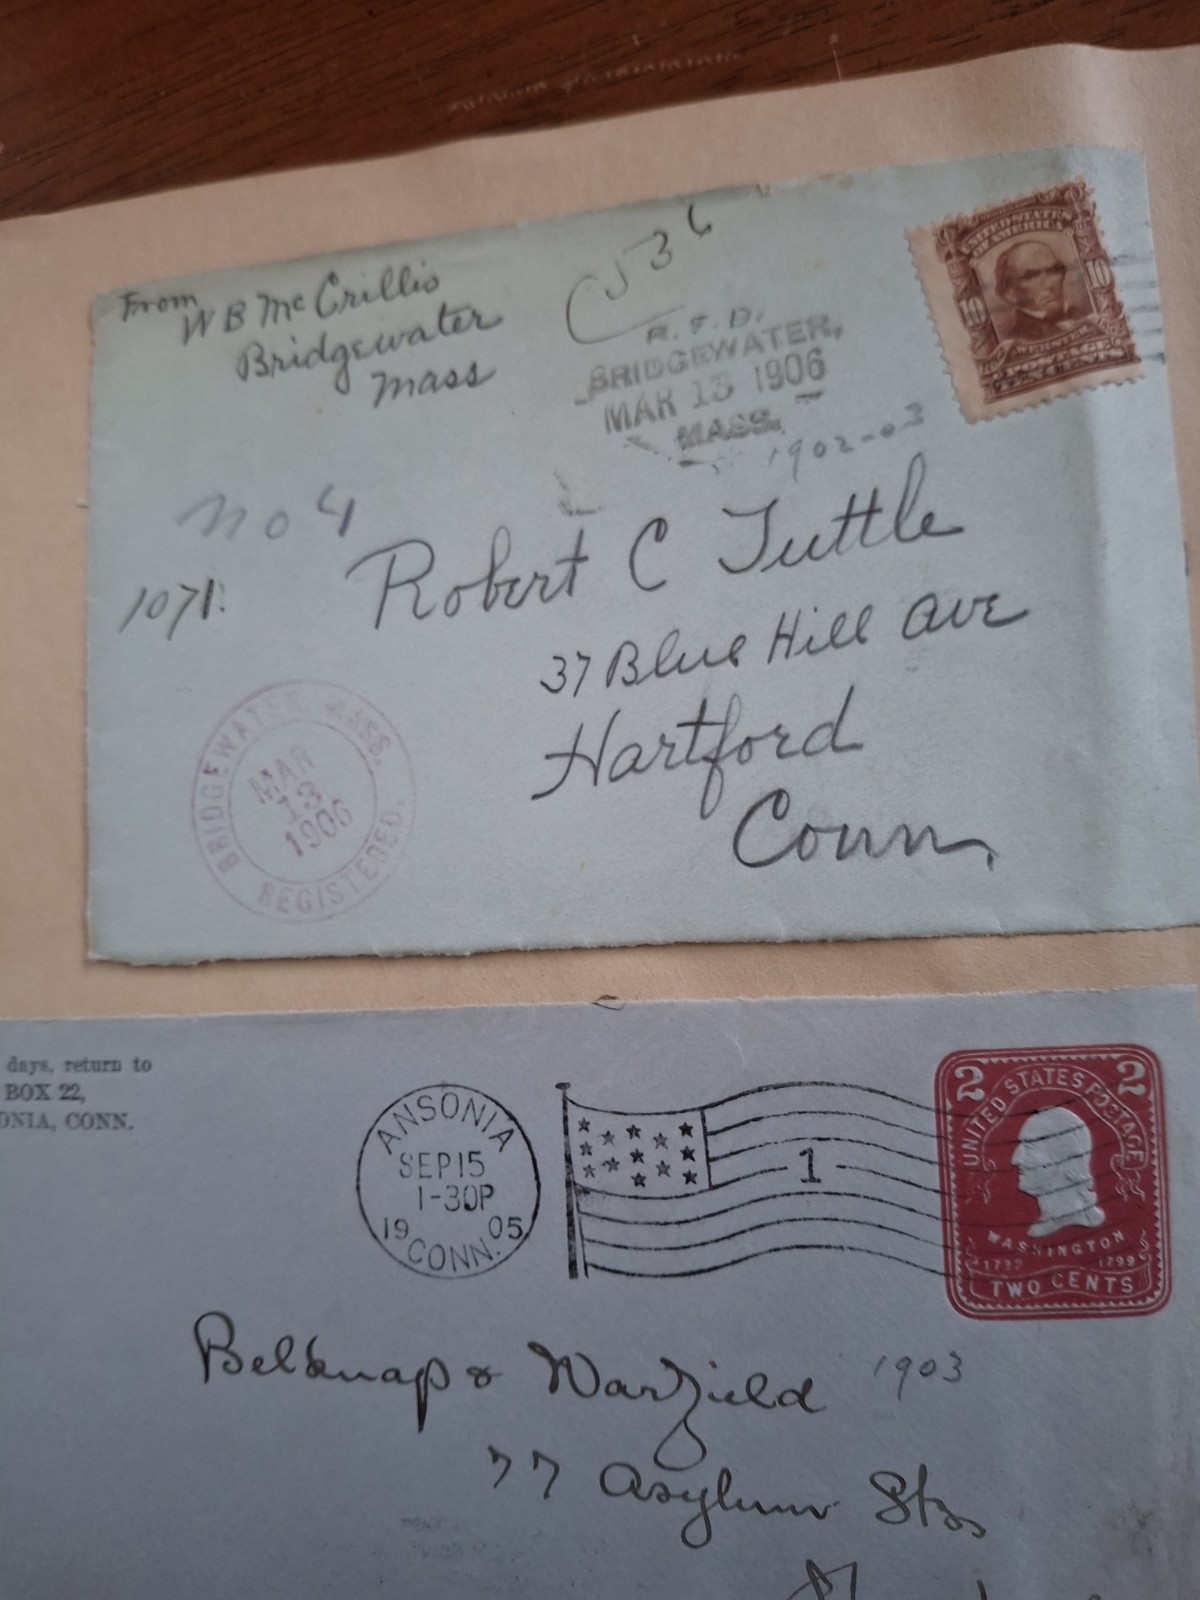 From
W B McCrillis
Bridgewater
Mass
C 536
R. F. D.
BRIDGEWATER,
MAR 13 1906
MASS.
1902-03
UNITED STATES
OF AMERICA
10 10
TEN CENTS
No 4
1071.
Robert C Tuttle
37 Blue Hill Ave
Hartford
Conn.
BRIDGEWATER MASS.
MAR
13
1906
REGISTERED.
days, return to
BOX 22,
ONIA, CONN.
ANSONIA
SEP 15
1-30P
19 05
CONN.
1
2 2
UNITED STATES POSTAGE
WASHINGTON
1732 1799
TWO CENTS
Belknap & Warfield
1903
77 Asylum St